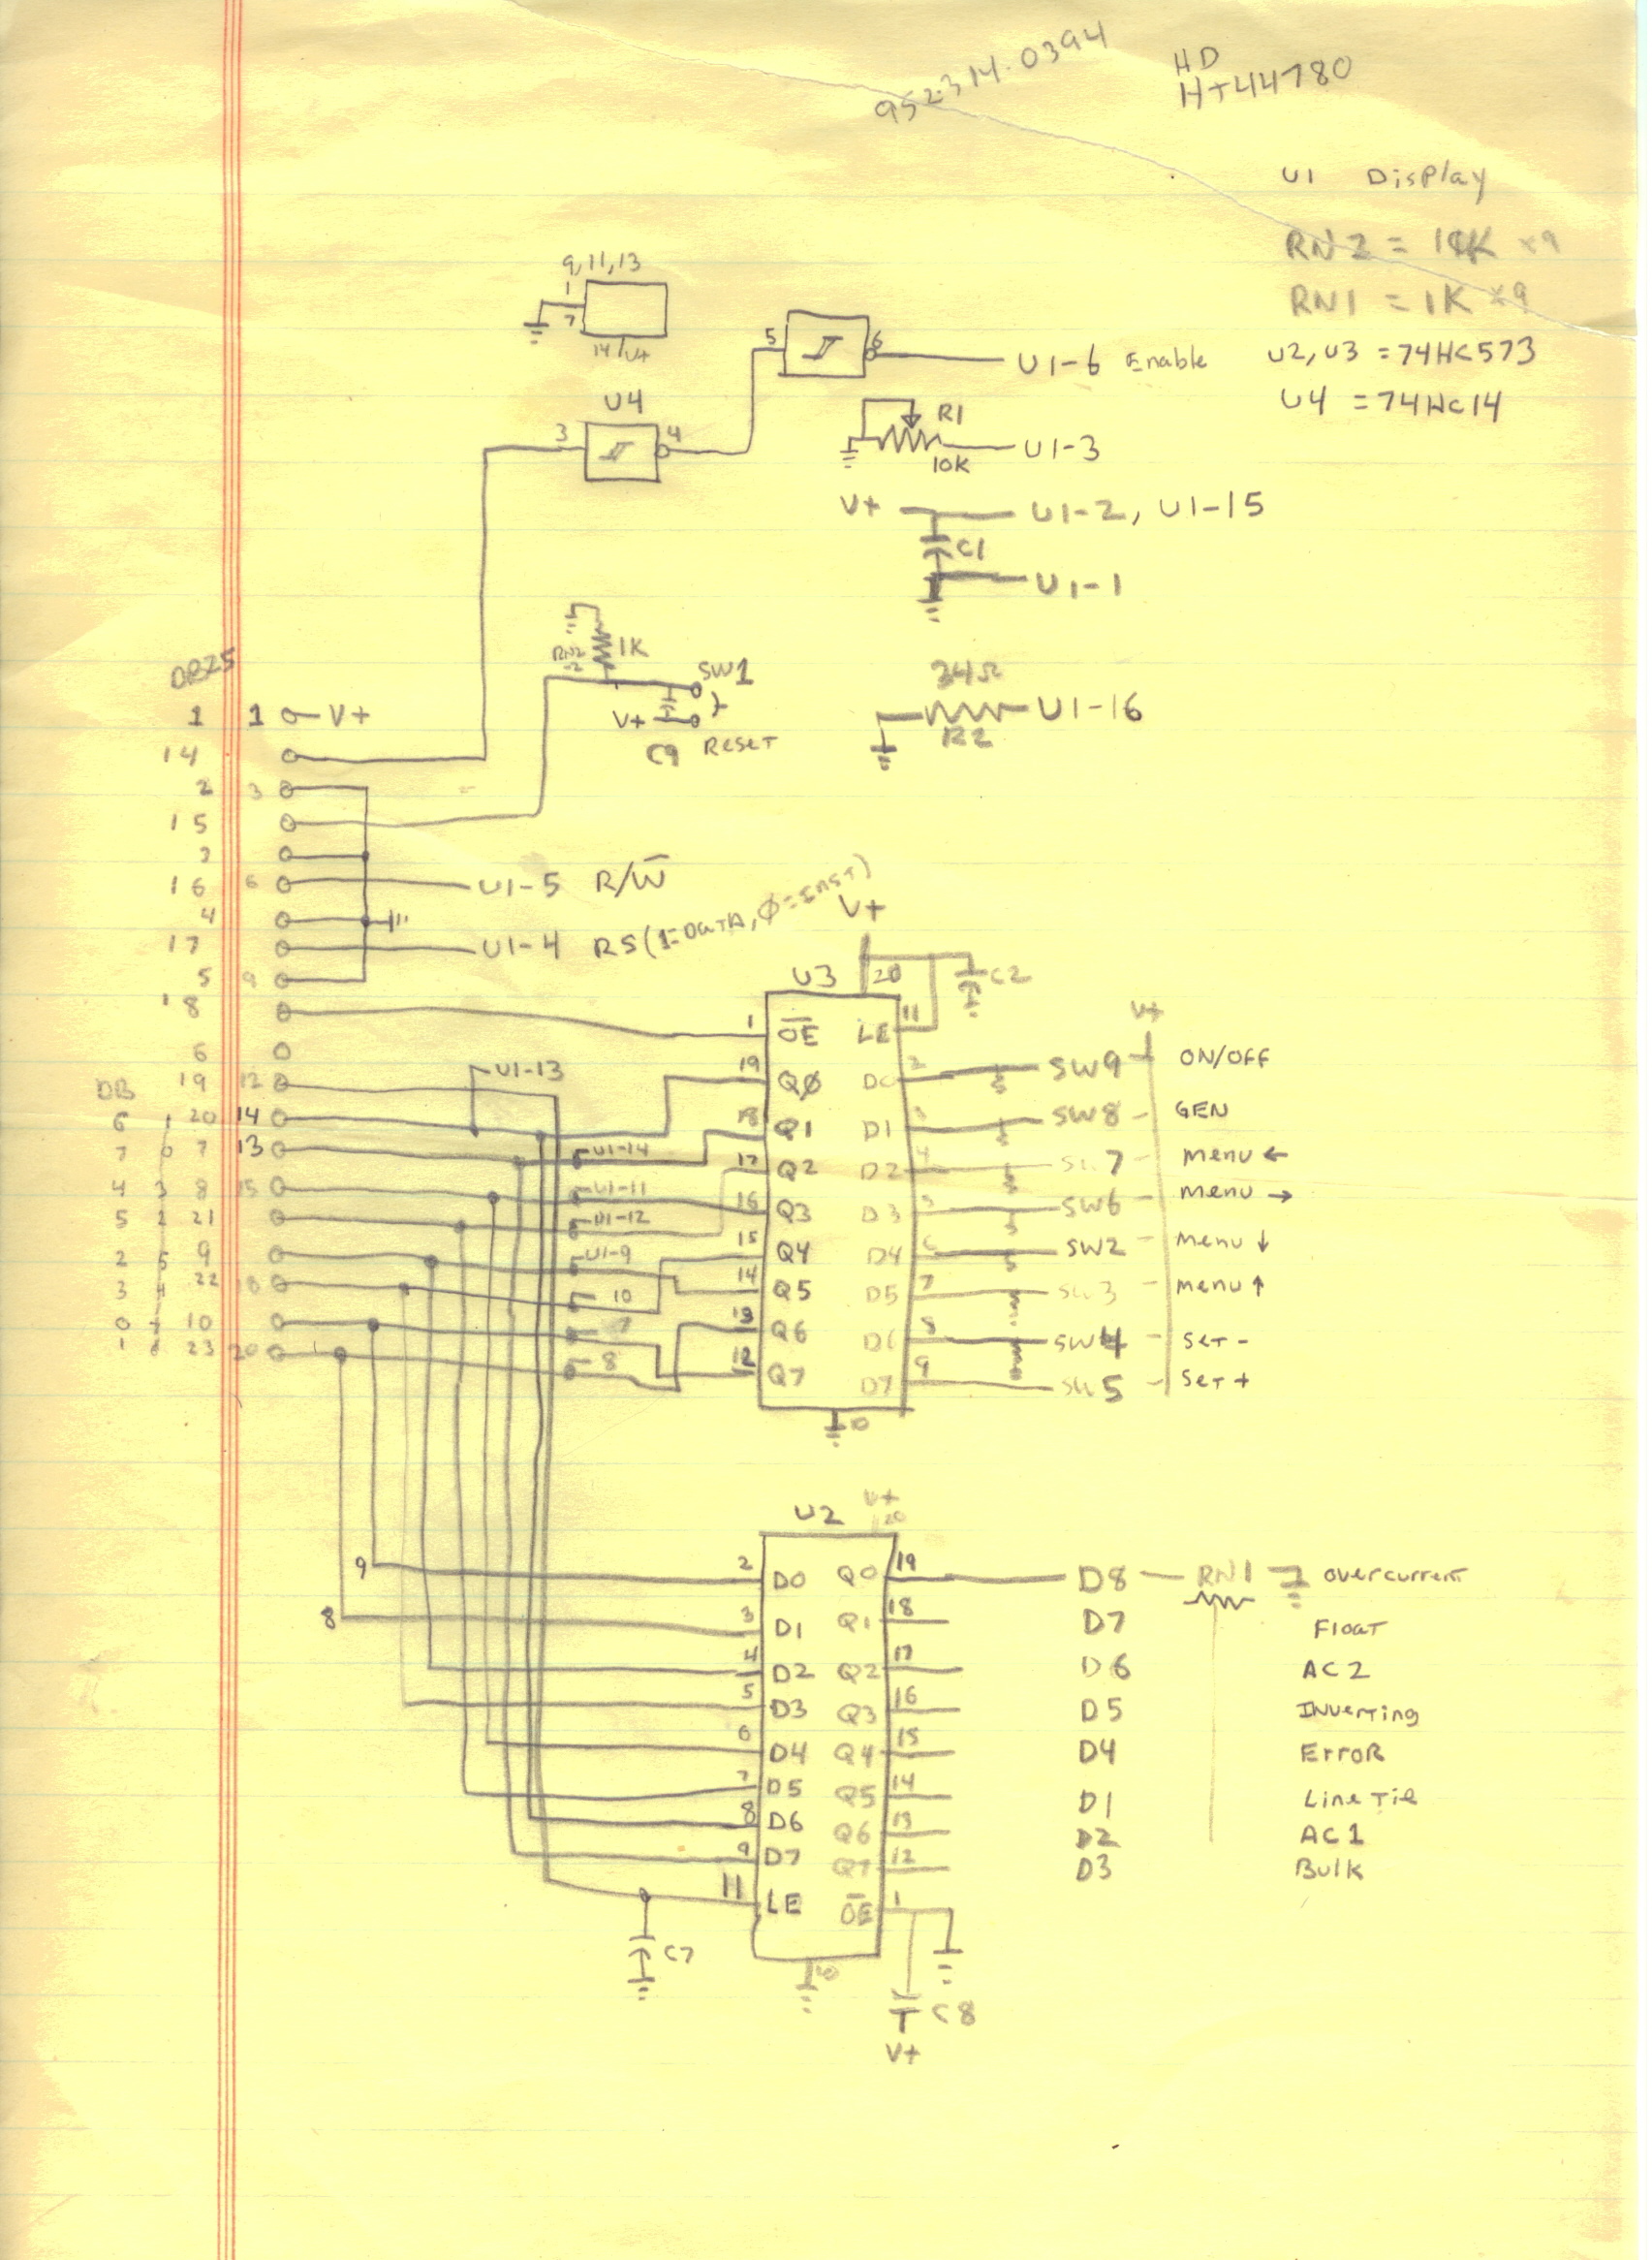 952.314.0394
HD
HT44780
U1 Display
RN2 = 10K x9
RN1 = 1K x9
U2, U3 = 74HC573
U4 = 74HC14
9, 11, 13
1
7
14/V+
5 6 U1-6 Enable
U4
3 4
R1
10K U1-3
V+ U1-2, U1-15
C1
U1-1
RN2
1K
SW1
V+
C9 RESET
34Ω
R2 U1-16
DB25
1 1 V+
14
2 3
15
3
16 6 U1-5 R/W̅
4
17 U1-4 RS (1=DATA, Ø=INST)
5 9
18
6
DB 19 12
6 1 20 14
7 0 7 13
4 3 8 15
5 2 21
2 5 9
3 4 22 18
0 7 10
1 6 23 20
U1-13
U1-14
U1-11
U1-12
U1-9
10
7
8
V+
U3 20 C2
1 O̅E̅ LE 11
19 QØ D0 2 SW9 V+ ON/OFF
18 Q1 D1 3 SW8 GEN
17 Q2 D2 4 SW7 Menu ←
16 Q3 D3 5 SW6 Menu →
15 Q4 D4 6 SW2 Menu ↓
14 Q5 D5 7 SW3 Menu ↑
13 Q6 D6 8 SW4 SET -
12 Q7 D7 9 SW5 SET +
10
U2 V+ 20
9 2 D0 Q0 19 D8 RN1 overcurrent
8 3 D1 Q1 18 D7 Float
4 D2 Q2 17 D6 AC2
5 D3 Q3 16 D5 INverting
6 D4 Q4 15 D4 ErroR
7 D5 Q5 14 D1 Line Tie
8 D6 Q6 13 D2 AC1
9 D7 Q7 12 D3 Bulk
11 LE O̅E̅ 1
C7
10
C8
V+